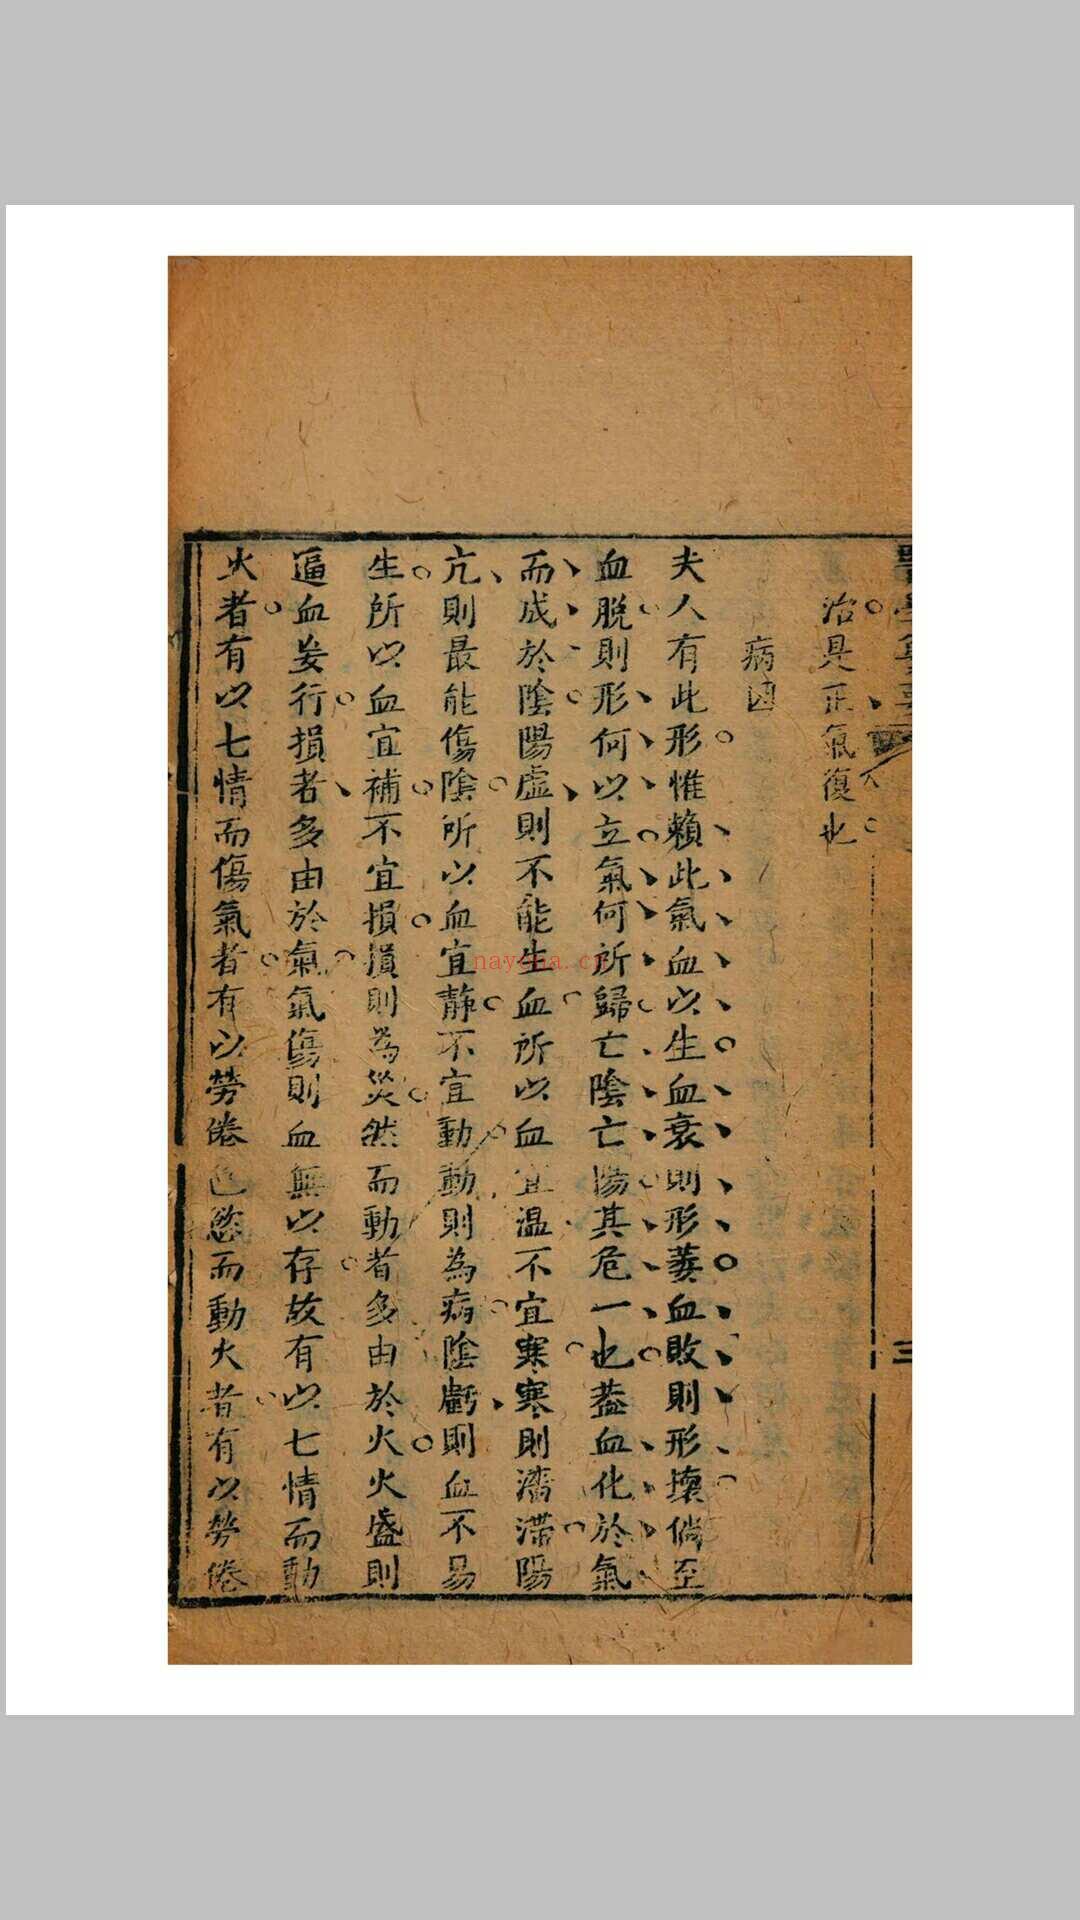 治是正氣復也
病因
夫人有此形惟賴此氣血以生血衰則形萎血敗則形壞倘至
血脫則形何以立氣何所歸亡陰亡陽其危一也葢血化於氣
而成於陰陽虛則不能生血所以血宜温不宜寒寒則濇滯陽
亢則最能傷陰所以血宜靜不宜動動則為病陰虧則血不易
生所以血宜補不宜損損則為災然而動者多由於火火盛則
逼血妄行損者多由於氣氣傷則血無以存故有以七情而動
火者有以七情而傷氣者有以勞倦色慾而動火者有以勞倦
三
nayona.cn